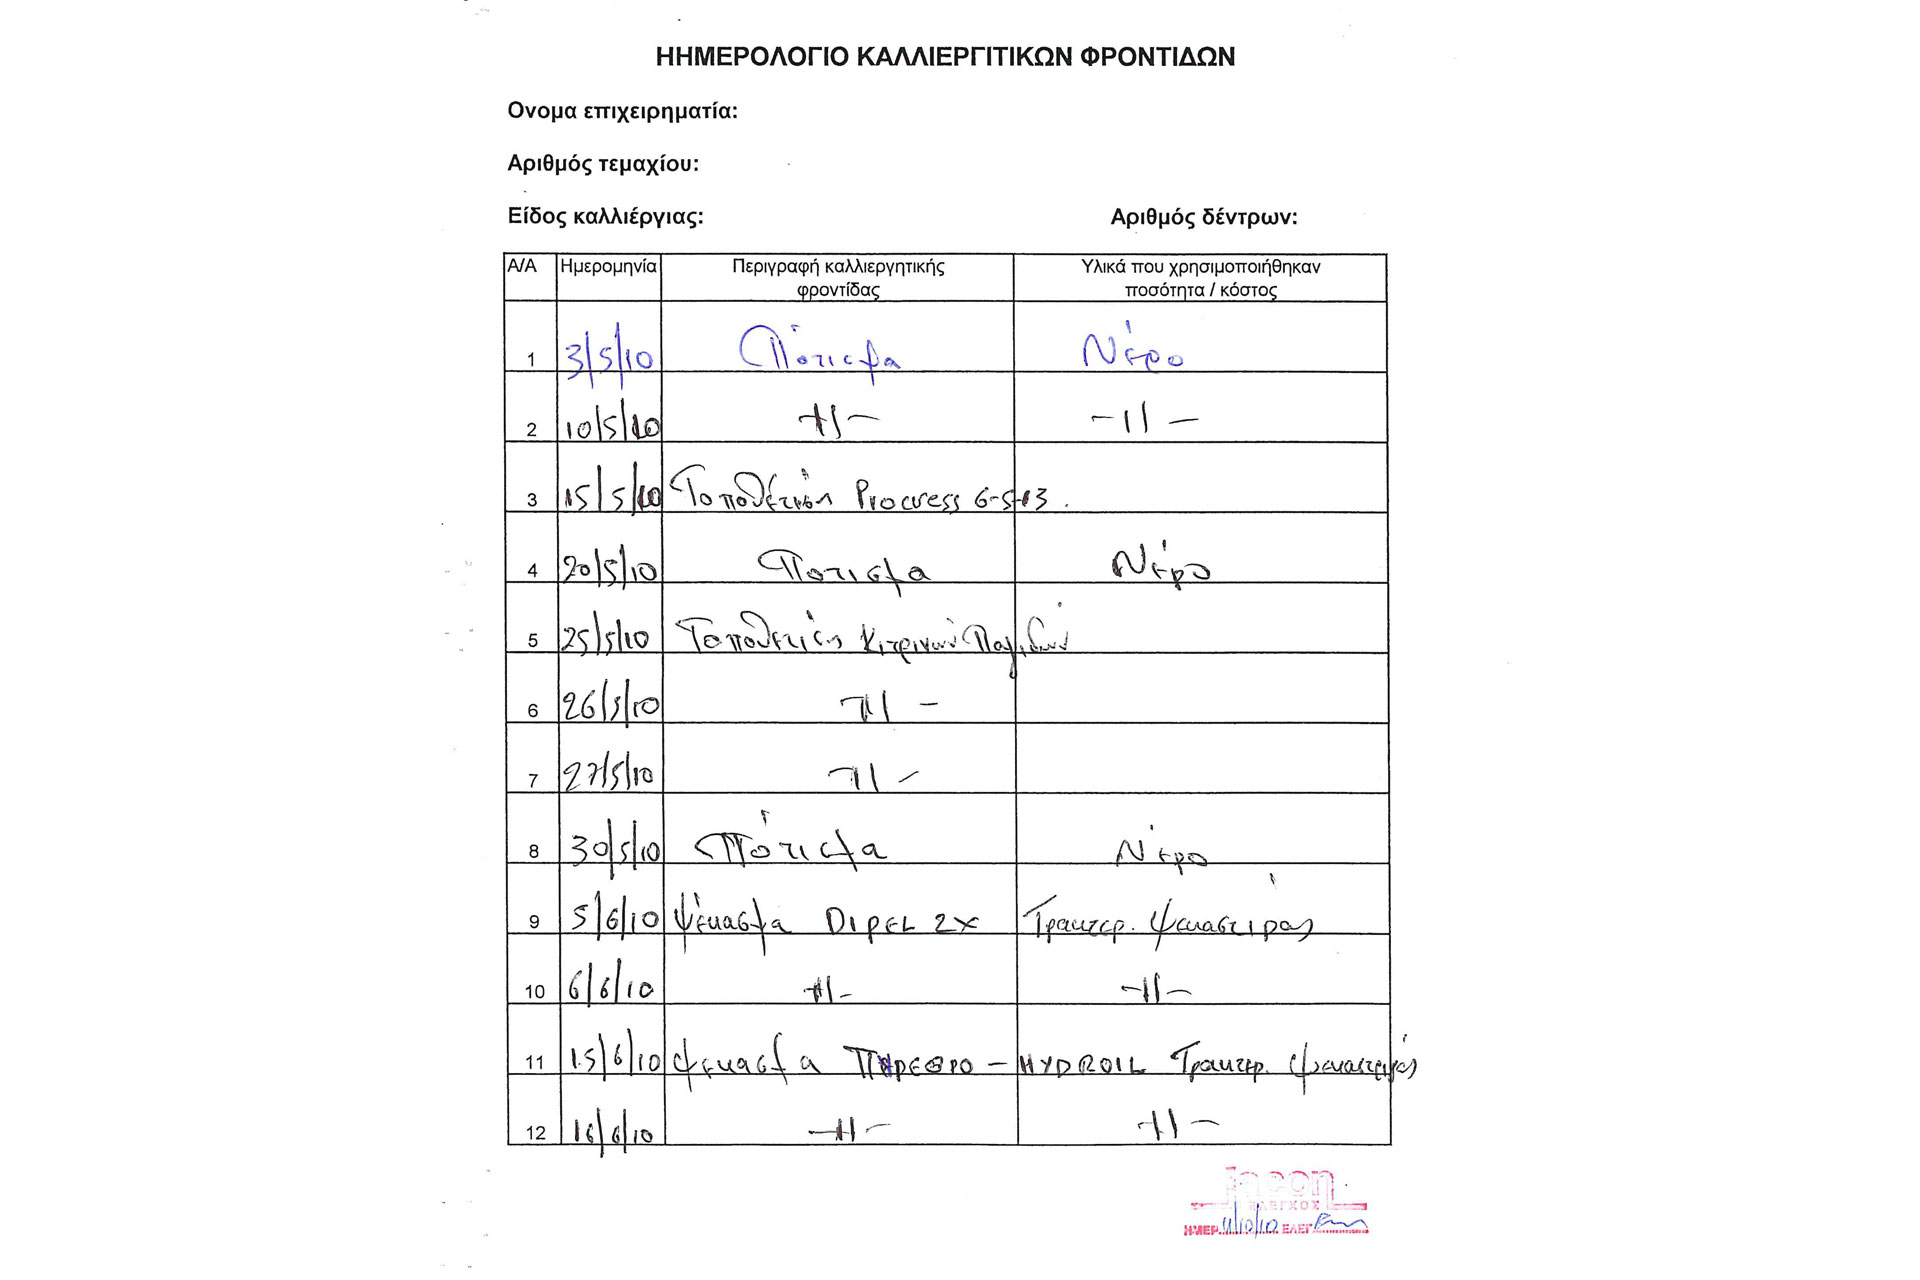 ΗΗΜΕΡΟΛΟΓΙΟ ΚΑΛΛΙΕΡΓΙΤΙΚΩΝ ΦΡΟΝΤΙΔΩΝ
Ονομα επιχειρηματία:
Αριθμός τεμαχίου:
Είδος καλλιέργιας: Αριθμός δέντρων:
Α/Α Ημερομηνία Περιγραφή καλλιεργητικής φροντίδας Υλικά που χρησιμοποιήθηκαν ποσότητα / κόστος
1 3/5/10 Πότισμα Νέρο
2 10/5/10 -||- -||-
3 15/5/10 Τοποθέτιση Procress 6-5-13.
4 20/5/10 Ποτισμα Νέρο
5 25/5/10 Τοποθετιση Κιτρινών Παγιδών
6 26/5/10 -||-
7 27/5/10 -||-
8 30/5/10 Πότισμα Νέρο
9 5/6/10 Ψέκασμα DIPEL 2X Τρακτερ. Ψεκαστιράς
10 6/6/10 -||- -||-
11 15/6/10 Ψεκασμα ΠΥΡΕΘΡΟ - HYDROIL Τρακτερ. Ψεκαστιράς
12 16/6/10 -||- -||-
lacon
ΕΛΕΓΧΟΣ
ΗΜΕΡ. 11/10/10 ΕΛΕΓ.